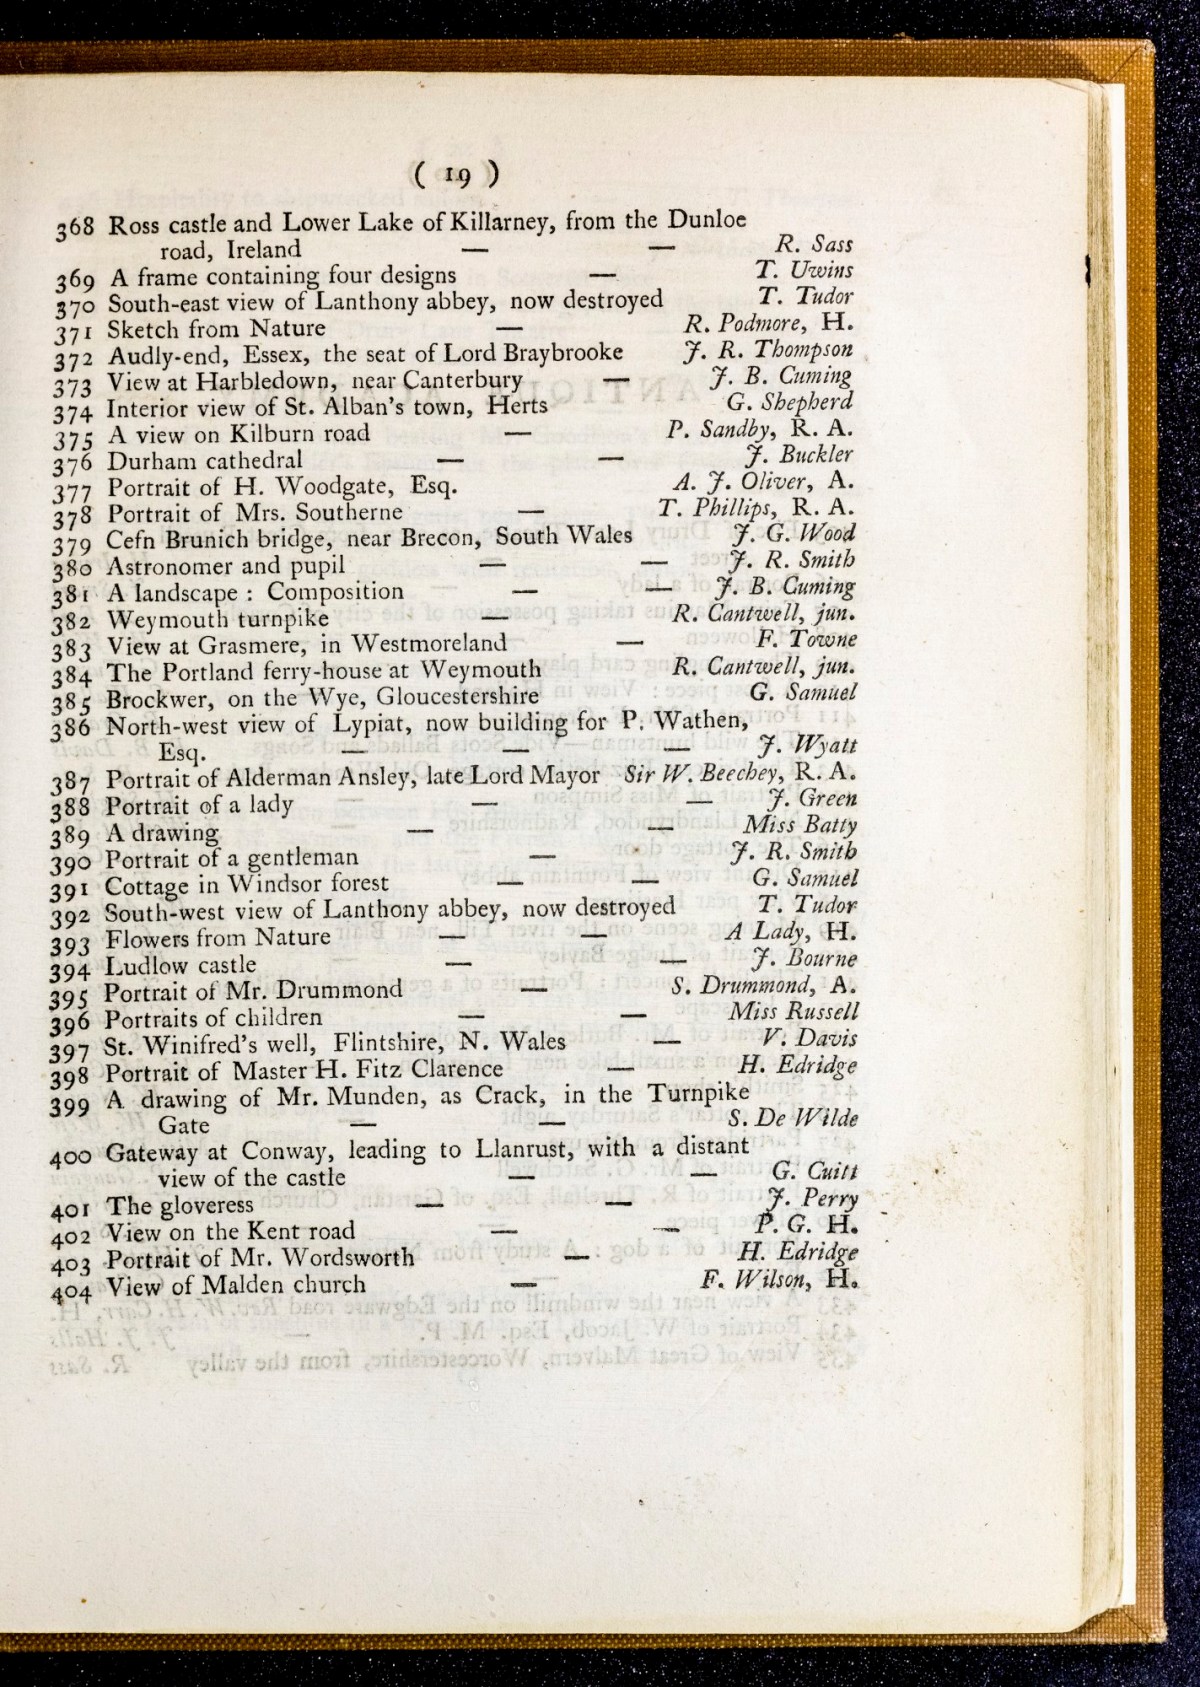 ( 19 )
368 Ross castle and Lower Lake of Killarney, from the Dunloe
road, Ireland — — R. Sass
369 A frame containing four designs — T. Uwins
370 South-east view of Lanthony abbey, now destroyed T. Tudor
371 Sketch from Nature — R. Podmore, H.
372 Audly-end, Essex, the seat of Lord Braybrooke J. R. Thompson
373 View at Harbledown, near Canterbury — J. B. Cuming
374 Interior view of St. Alban's town, Herts G. Shepherd
375 A view on Kilburn road — P. Sandby, R. A.
376 Durham cathedral — — J. Buckler
377 Portrait of H. Woodgate, Esq. A. J. Oliver, A.
378 Portrait of Mrs. Southerne — T. Phillips, R. A.
379 Cefn Brunich bridge, near Brecon, South Wales J. G. Wood
380 Astronomer and pupil — — J. R. Smith
381 A landscape : Composition — — J. B. Cuming
382 Weymouth turnpike — R. Cantwell, jun.
383 View at Grasmere, in Westmoreland — F. Towne
384 The Portland ferry-house at Weymouth R. Cantwell, jun.
385 Brockwer, on the Wye, Gloucestershire G. Samuel
386 North-west view of Lypiat, now building for P. Wathen,
Esq. — — — J. Wyatt
387 Portrait of Alderman Ansley, late Lord Mayor Sir W. Beechey, R. A.
388 Portrait of a lady — — J. Green
389 A drawing — — Miss Batty
390 Portrait of a gentleman — J. R. Smith
391 Cottage in Windsor forest — — G. Samuel
392 South-west view of Lanthony abbey, now destroyed T. Tudor
393 Flowers from Nature — — A Lady, H.
394 Ludlow castle — — J. Bourne
395 Portrait of Mr. Drummond — S. Drummond, A.
396 Portraits of children — — Miss Russell
397 St. Winifred's well, Flintshire, N. Wales — V. Davis
398 Portrait of Master H. Fitz Clarence — H. Edridge
399 A drawing of Mr. Munden, as Crack, in the Turnpike
Gate — — S. De Wilde
400 Gateway at Conway, leading to Llanrust, with a distant
view of the castle — — G. Cuitt
401 The gloveress — — J. Perry
402 View on the Kent road — — P. G. H.
403 Portrait of Mr. Wordsworth — H. Edridge
404 View of Malden church — F. Wilson, H.